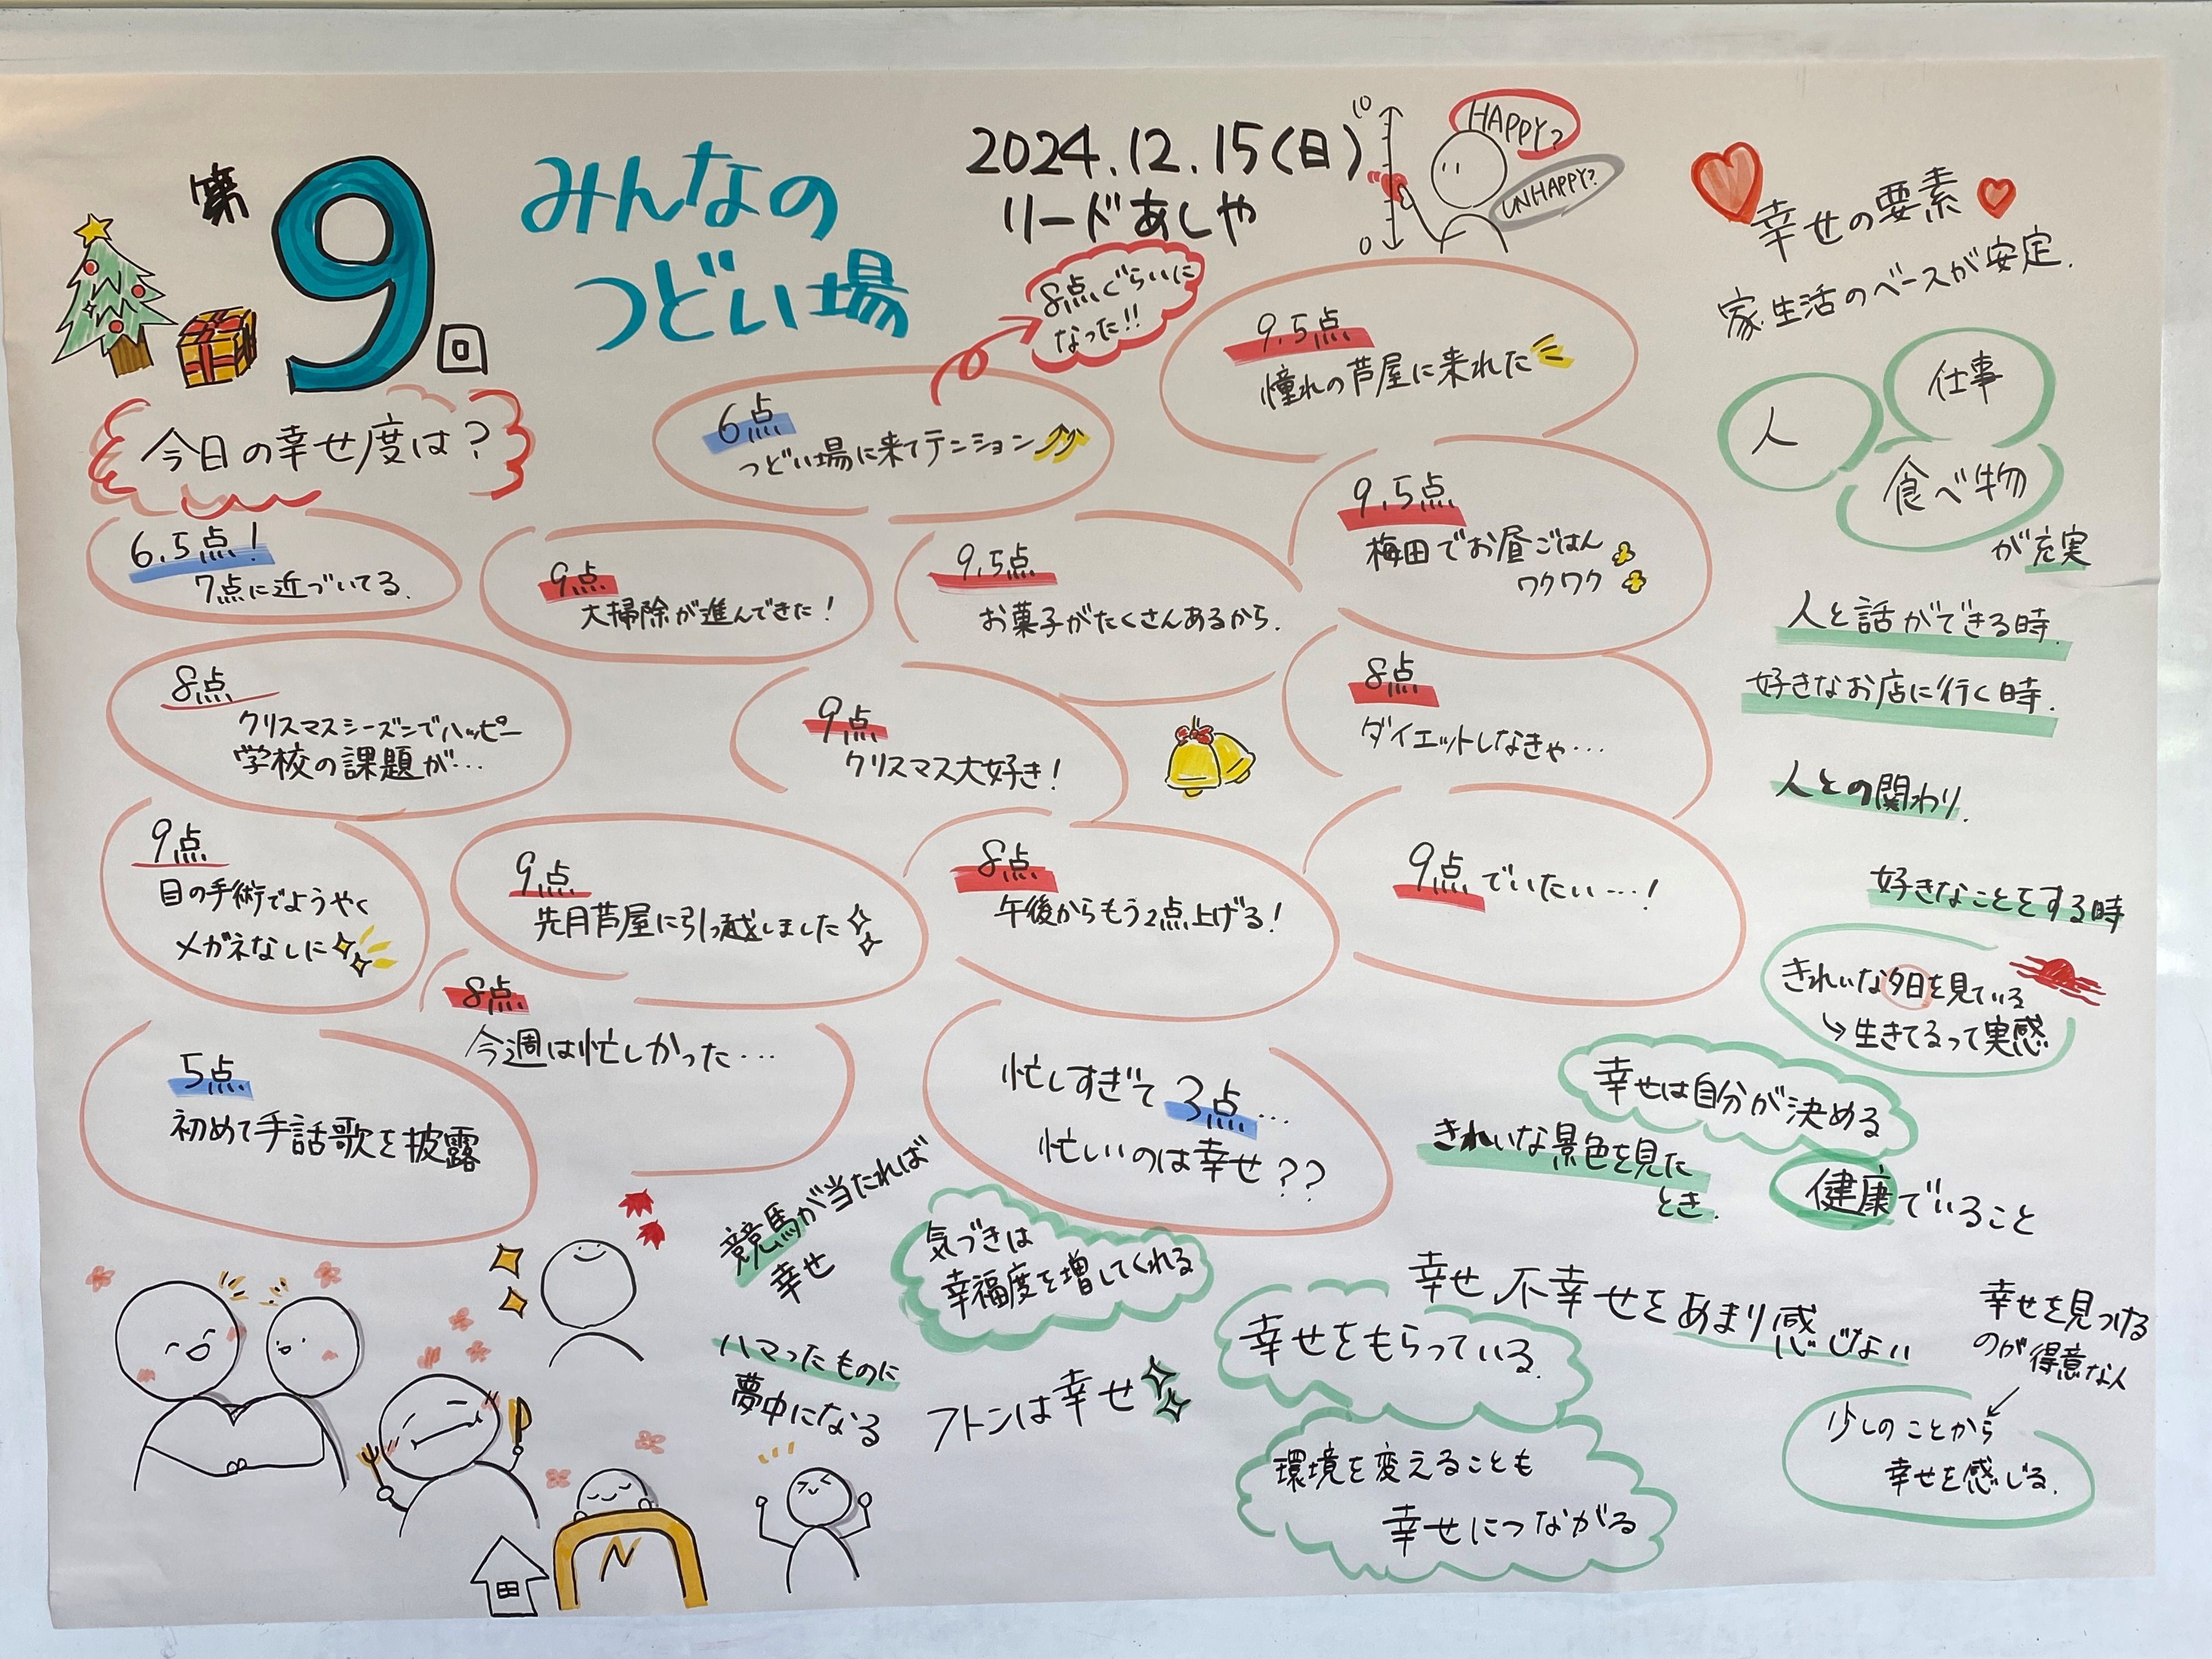 第9回
みんなの
つどい場
2024.12.15(日)
リードあしや
10
0
HAPPY?
UNHAPPY?
今日の幸せ度は?
6点
つどい場に来てテンション
8点ぐらいに
なった!!
9.5点
憧れの芦屋に来れた
6.5点!
7点に近づいてる.
9点
大掃除が進んできた!
9.5点
お菓子がたくさんあるから.
9.5点
梅田でお昼ごはん
ワクワク
8点
クリスマスシーズンでハッピー
学校の課題が…
9点
クリスマス大好き!
8点
ダイエットしなきゃ…
9点
目の手術でようやく
メガネなしに
9点
先月芦屋に引っ越しました
8点
午後からもう2点上げる!
9点でいたい…!
8点
今週は忙しかった…
5点
初めて手話歌を披露
忙しすぎて3点…
忙しいのは幸せ??
幸せの要素
家.生活のベースが安定.
人
仕事
食べ物
が充実
人と話ができる時.
好きなお店に行く時.
人との関わり.
好きなことをする時
きれいな夕日を見ている
↳生きてるって実感
幸せは自分が決める
きれいな景色を見た
とき.
健康でいること
競馬が当たれば
幸せ
気づきは
幸福度を増してくれる
ハマったものに
夢中になる
フトンは幸せ
幸せ、不幸せをあまり感じない
幸せをもらっている.
環境を変えることも
幸せにつながる
幸せを見つける
のが得意な人
少しのことから
幸せを感じる.